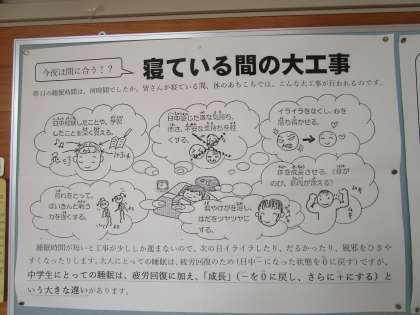 今夜は間に合う！？
寝ている間の大工事
昨日の睡眠時間は、何時間でしたか。皆さんが寝ている間、体のあちこちでは、こんな大工事が行われるのです。
日中経験したことや、学習
したことを覚える。
日中感じた嫌な気持ち、
怖さ、不安な気持ちを軽
くする。
イライラをなくし、心を
落ち着かせる。
疲れをとって、
ばいきんと戦う
力を強くする。
肌やけがを治し、
はだをツヤツヤに
する。
体を成長させる。（身が
のび、筋肉が増える）
睡眠時間が短いと工事が少ししか進まないので、次の日イライラしたり、だるかったり、風邪をひきや
すくなったりします。大人にとっての睡眠は、疲労回復のため（日中－になった状態を０に戻す）ですが、
中学生にとっての睡眠は、疲労回復に加え、「成長」（－を０に戻し、さらに＋にする）と
いう大きな違いがあります。